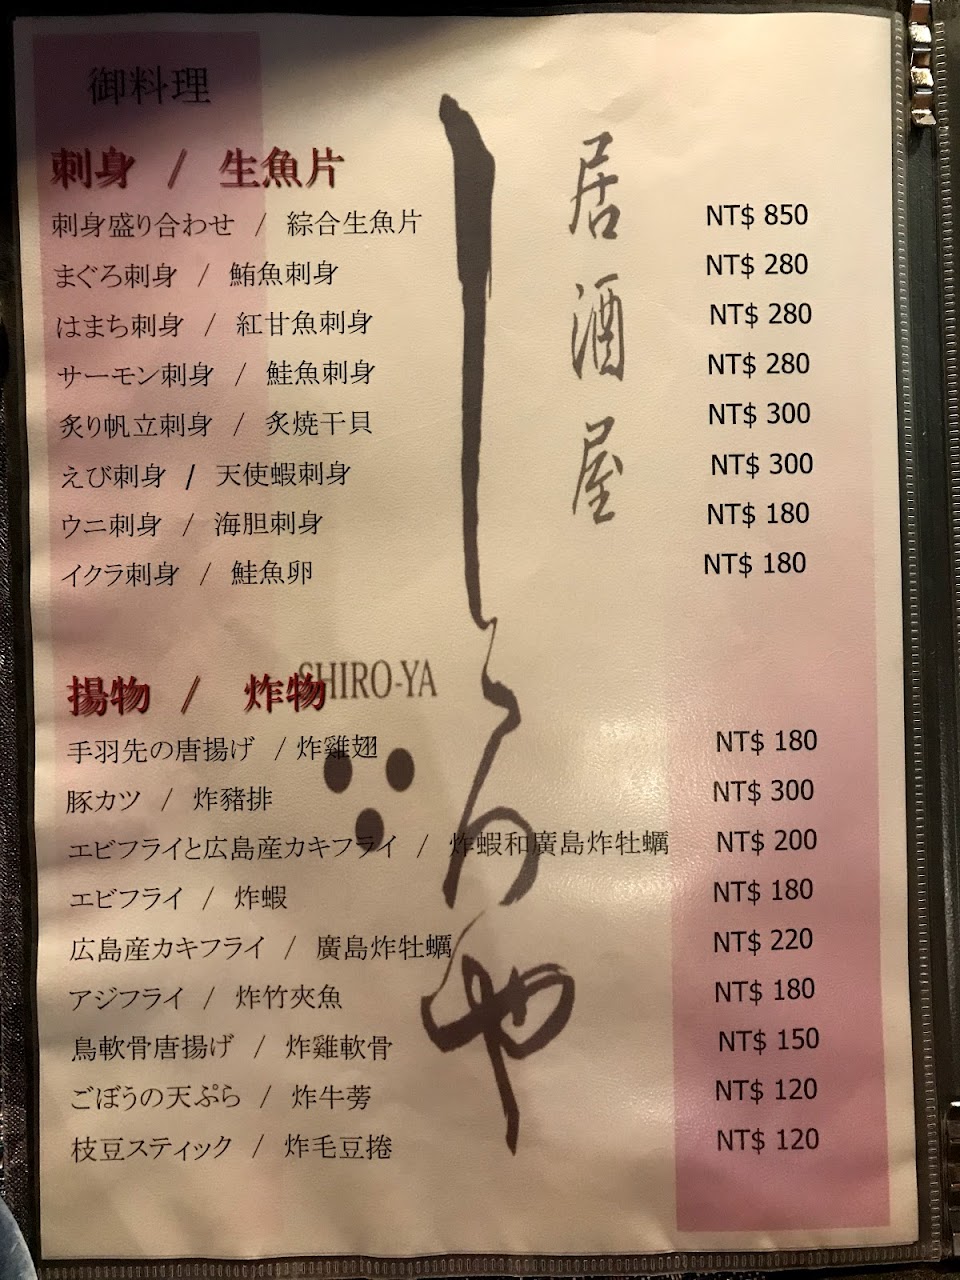 御料理
居酒屋
しろや
刺身 / 生魚片
刺身盛り合わせ / 綜合生魚片 NT$ 850
まぐろ刺身 / 鮪魚刺身 NT$ 280
はまち刺身 / 紅甘魚刺身 NT$ 280
サーモン刺身 / 鮭魚刺身 NT$ 280
炙り帆立刺身 / 炙焼干貝 NT$ 300
えび刺身 / 天使蝦刺身 NT$ 300
ウニ刺身 / 海胆刺身 NT$ 180
イクラ刺身 / 鮭魚卵 NT$ 180
SHIRO-YA
揚物 / 炸物
手羽先の唐揚げ / 炸雞翅 NT$ 180
豚カツ / 炸豬排 NT$ 300
エビフライと広島産カキフライ / 炸蝦和廣島炸牡蠣 NT$ 200
エビフライ / 炸蝦 NT$ 180
広島産カキフライ / 廣島炸牡蠣 NT$ 220
アジフライ / 炸竹夾魚 NT$ 180
鳥軟骨唐揚げ / 炸雞軟骨 NT$ 150
ごぼうの天ぷら / 炸牛蒡 NT$ 120
枝豆スティック / 炸毛豆捲 NT$ 120